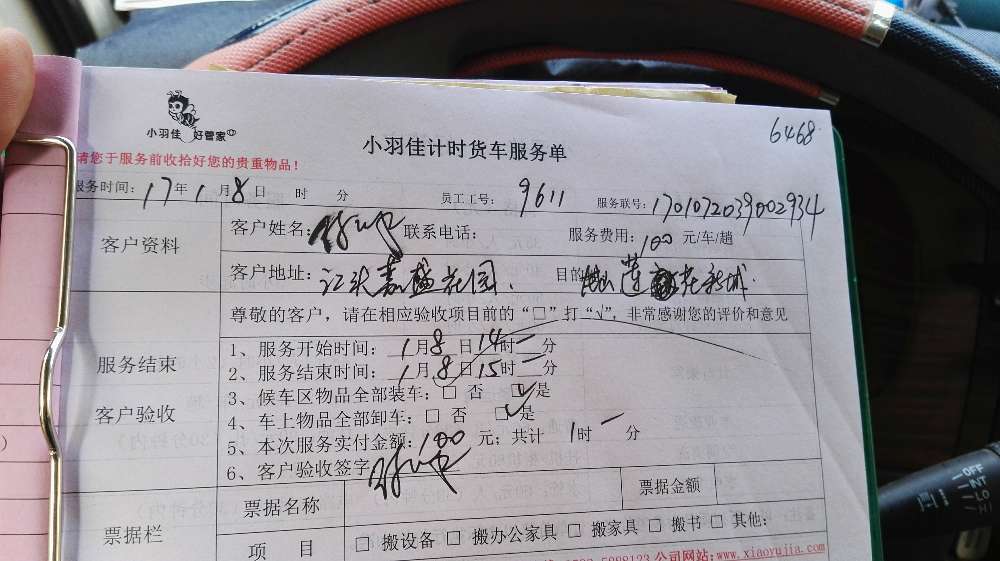 6468
小羽佳 好管家
小羽佳计时货车服务单
请您于服务前收拾好您的贵重物品！
服务时间：17年1月8日 时 分 员工工号：9611 服务联号：1701072039002934
客户资料
客户姓名： 联系电话： 服务费用：100元/车/趟
客户地址：江头嘉盛花园 目的地 莲花新城
尊敬的客户，请在相应验收项目前的“□”打“√”，非常感谢您的评价和意见
服务结束
客户验收
1、服务开始时间：1月8日14时一分
2、服务结束时间：1月8日15时一分
3、候车区物品全部装车：□ 否 □是
4、车上物品全部卸车：□ 否 □是
5、本次服务实付金额：100元；共计 1时一分
6、客户验收签字
票据栏
票据名称 票据金额
项 目 □ 搬设备 □ 搬办公家具 □ 搬家具 □ 搬书 □ 其他：
5888123 公司网站：www.xiaoyujia.com